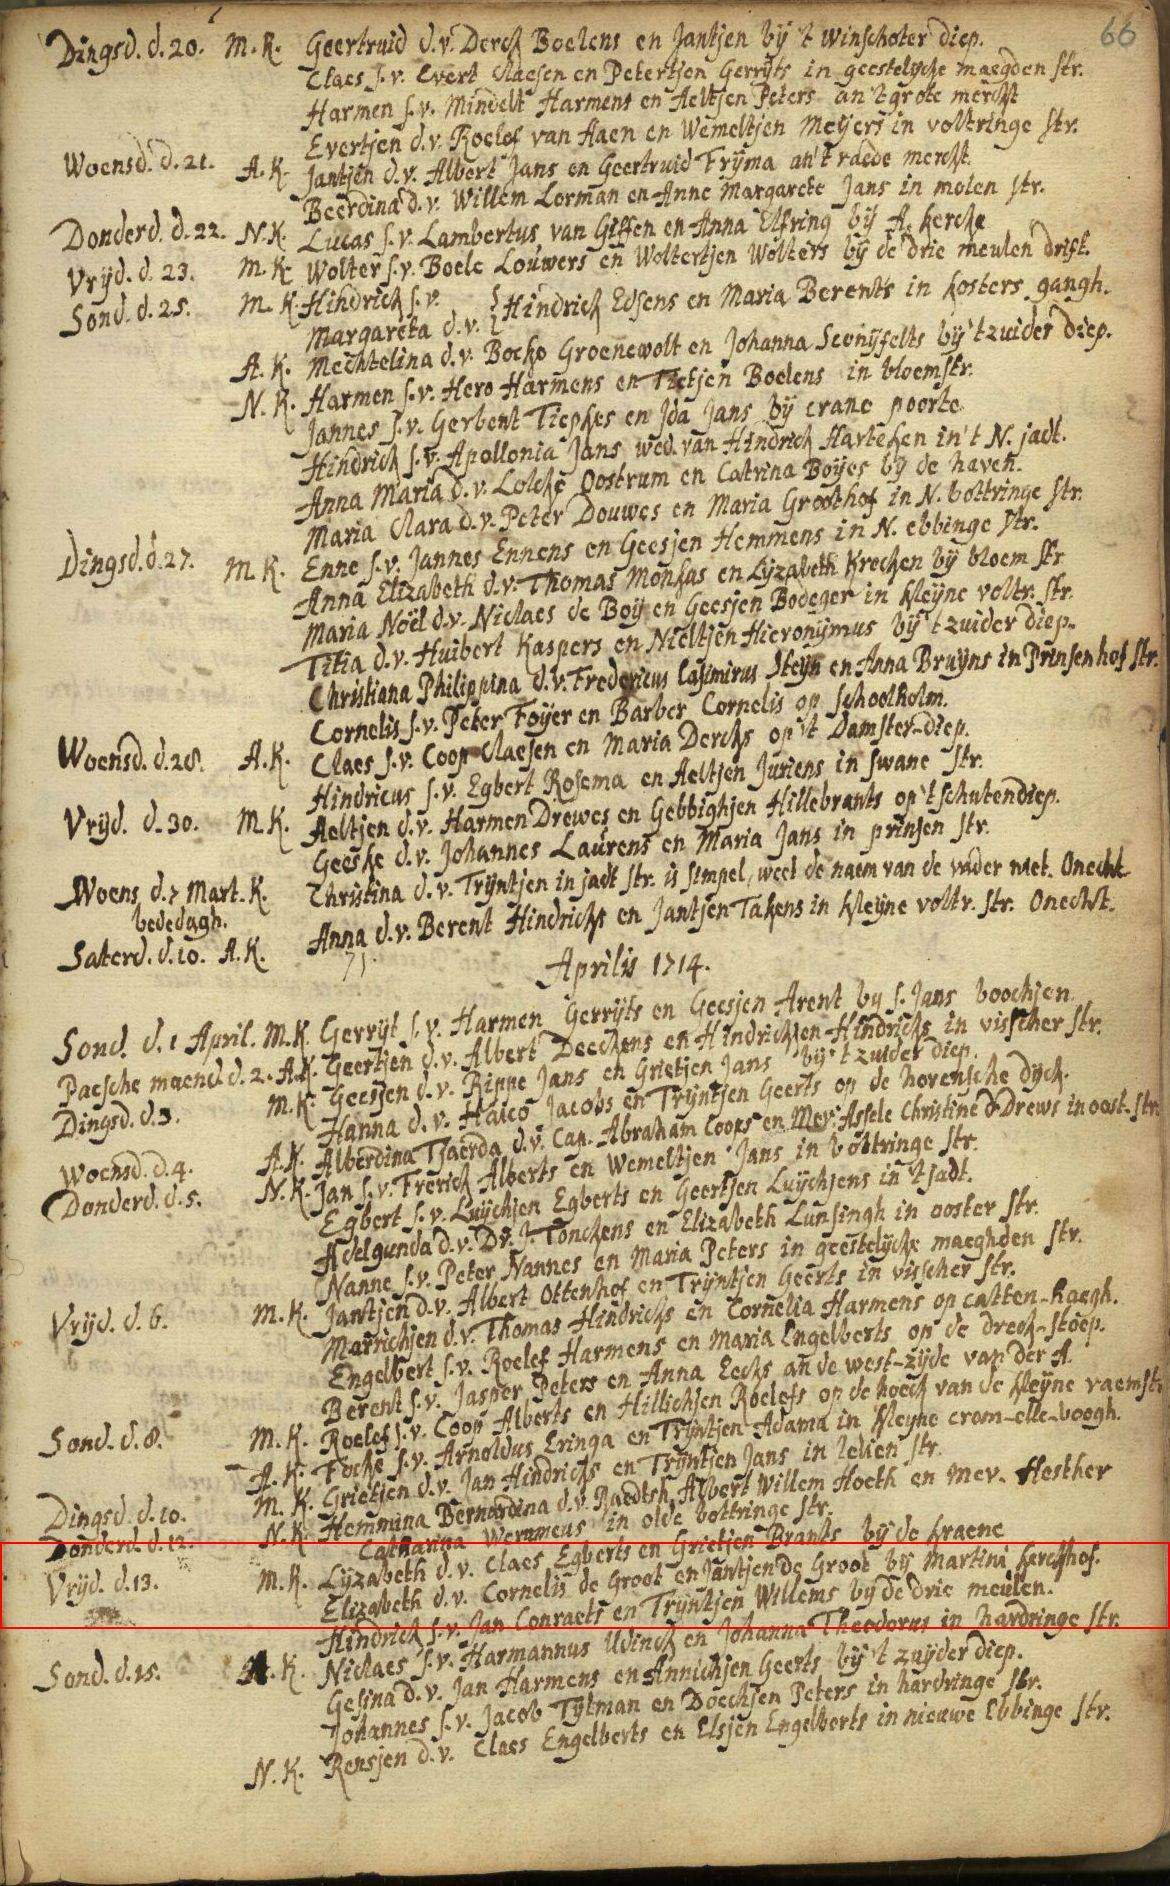 66
Dingsd. d. 20. M. K. Geertruid d. v. Derck Boelens en Jantjen bij 't Winschoter diep.
Claes s. v. Evert Claesen en Petertjen Gerrijts in geestelijcke maegden str.
Harmen s. v. Mindelt Harmens en Aeltjen Peters an 't grote merckt
Evertjen d. v. Roelef van Haen en Wemeltjen Meijers in voltringe str.
Woensd. d. 21. A. K. Jantjen d. v. Albert Jans en Geertruid Frijma an 't raede merckt.
Beerdina d. v. Willem Lorman en Anne Margarete Jans in molen str.
Donderd. d. 22. N. K. Lucas s. v. Lambertus van Giffen en Anna Elfring bij A. kercke
Vrijd. d. 23. M. K. Wolter s. v. Boele Louwers en Woltertjen Wolters bij de drie meulen drift.
Sond. d. 25. M. K. Hindrick s. v. Hindrick Edsens en Maria Berents in kosters gangh.
Margareta d. v.
A. K. Mechtelina d. v. Bocko Groenewolt en Johanna bij 't zuider diep.
N. K. Harmen s. v. Hero Harmens en Tietjen Boelens in bloemstr.
Jannes s. v. Gerbent Tiepkes en Ida Jans bij crane poorte
Hindrick s. v. Apollonia Jans wed. van Hindrick Harteken in 't N. jadt.
Anna Maria d. v. Lolcke Oostrum en Catrina Boijes bij de haven.
Maria Clara d. v. Peter Douwes en Maria Groothof in N. bottringe str.
Dingsd. d. 27. M. K. Enne s. v. Jannes Ennens en Geesjen Hemmens in N. ebbinge str.
Anna Elizabeth d. v. Thomas Monkas en Lijzabeth Krecken bij bloem str
Maria Noël d. v. Niclaes de Boij en Geesjen Bodeger in kleijne voltr. str.
Titia d. v. Huibert Kaspers en Nieltjen Hieronijmus bij 't zuider diep.
Christiana Philippina d. v. Fredericus Casimirus Steijn en Anna Bruijns in Prinsen hof str.
Cornelis s. v. Peter Foijer en Barber Cornelis op schoolholm.
Woensd. d. 28. A. K. Claes s. v. Coop Claesen en Maria Dercks op 't Damster-diep.
Hindricus s. v. Egbert Rosema en Aeltjen Juriens in swane str.
Vrijd. d. 30. M. K. Aeltjen d. v. Harmen Drewes en Gebbighjen Hillebrants op 't schutendiep.
Geeske d. v. Johannes Laurens en Maria Jans in prinsen str.
Woens. d. 7 Mart. K. Christina d. v. Trijntjen in jadt str. is simpel, weet de naem van de vader niet. Onecht
bededagh.
Saterd. d. 10. A. K. Anna d. v. Berent Hindricks en Jantjen Takens in kleijne voltr. str. Onecht.
71
Aprilis 1714.
Sond. d. 1 April. M. K. Gerrijt s. v. Harmen Gerrijts en Geesjen Arent by s. Jans boochjen.
Paesche maend. d. 2. A. K. Geertjen d. v. Albert Deeckens en Hindrickjen Hindricks in visscher str.
Dingsd. d. 3. M. K. Geesjen d. v. Rippe Jans en Grietjen Jans bij 't zuider diep.
Hanna d. v. Haico Jacobs en Trijntjen Geerts op de horensche dijck.
Woensd. d. 4. A. K. Alberdina Tjaerda d. v. Cap. Abraham Coops en Mev. Assele Christine Drews in oost. str.
Donderd. d. 5. N. K. Jan s. v. Frerick Alberts en Wemeltjen Jans in bottringe str.
Egbert s. v. Luijchjen Egberts en Geertjen Luijchjens in 't jadt.
Adelgunda d. v. Dr. J. Tonckens en Elizabeth Lunsingh in ooster str.
Nanne s. v. Peter Nannes en Maria Peters in geestelijcke maeghden str.
Vrijd. d. 6. M. K. Jantjen d. v. Albert Ottenhof en Trijntjen Geerts in visscher str.
Marrichjen d. v. Thomas Hindricks en Cornelia Harmens op catten-haegh.
Engelbert s. v. Roelef Harmens en Maria Engelberts op de dreck-stoep.
Berent s. v. Jasper Peters en Anna Eecks an de west-zijde van der A.
Roelef s. v. Coop Alberts en Hillichjen Roelefs op de hoeck van de kleyne raemstr
Sond. d. 8. M. K. Focke s. v. Arnoldus Eringa en Trijntjen Adama in kleyne crom-elle-boogh.
A. K. Grietjen d. v. Jan Hindricks en Trijntjen Jans in lelien str.
Dingsd. d. 10. M. K. Hemmina Bernardina d. v. Raedtsh. Albert Willem Hoeth en Mev. Hesther
Catharina Wermeus in olde bottringe str.
Donderd. d. 12. N. K. Lijzabeth d. v. Claes Egberts en Grietjen Brants bij de kraene
Vrijd. d. 13. M. K. Elizabeth d. v. Cornelis de Groot en Jantjen de Groot bij Martini kerckhof.
Hindrick s. v. Jan Conraets en Trijntjen Willems bij de drie meulen.
Sond. d. 15. A. K. Niclaes s. v. Harmannus Udinck en Johanna Theodorus in hardringe str.
Gesina d. v. Jan Harmens en Annichjen Geerts bij 't zuijder diep.
Johannes s. v. Jacob Tijtman en Doechjen Peters in hardringe str.
N. K. Rensjen d. v. Claes Engelberts en Elsjen Engelberts in nieuwe Ebbinge str.